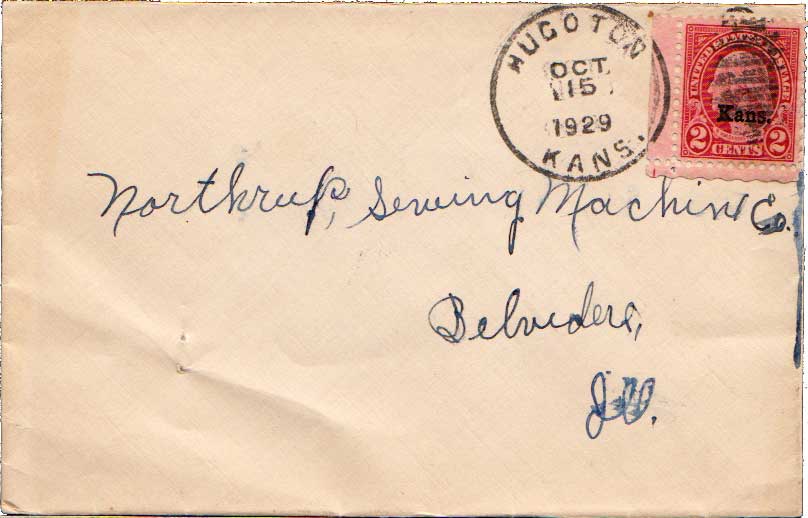 HUGOTON
OCT
15
1929
KANS.
UNITED STATES POSTAGE
Kans.
2 CENTS 2
Northrup, Sewing Machine Co.
Belvidere,
Ill.